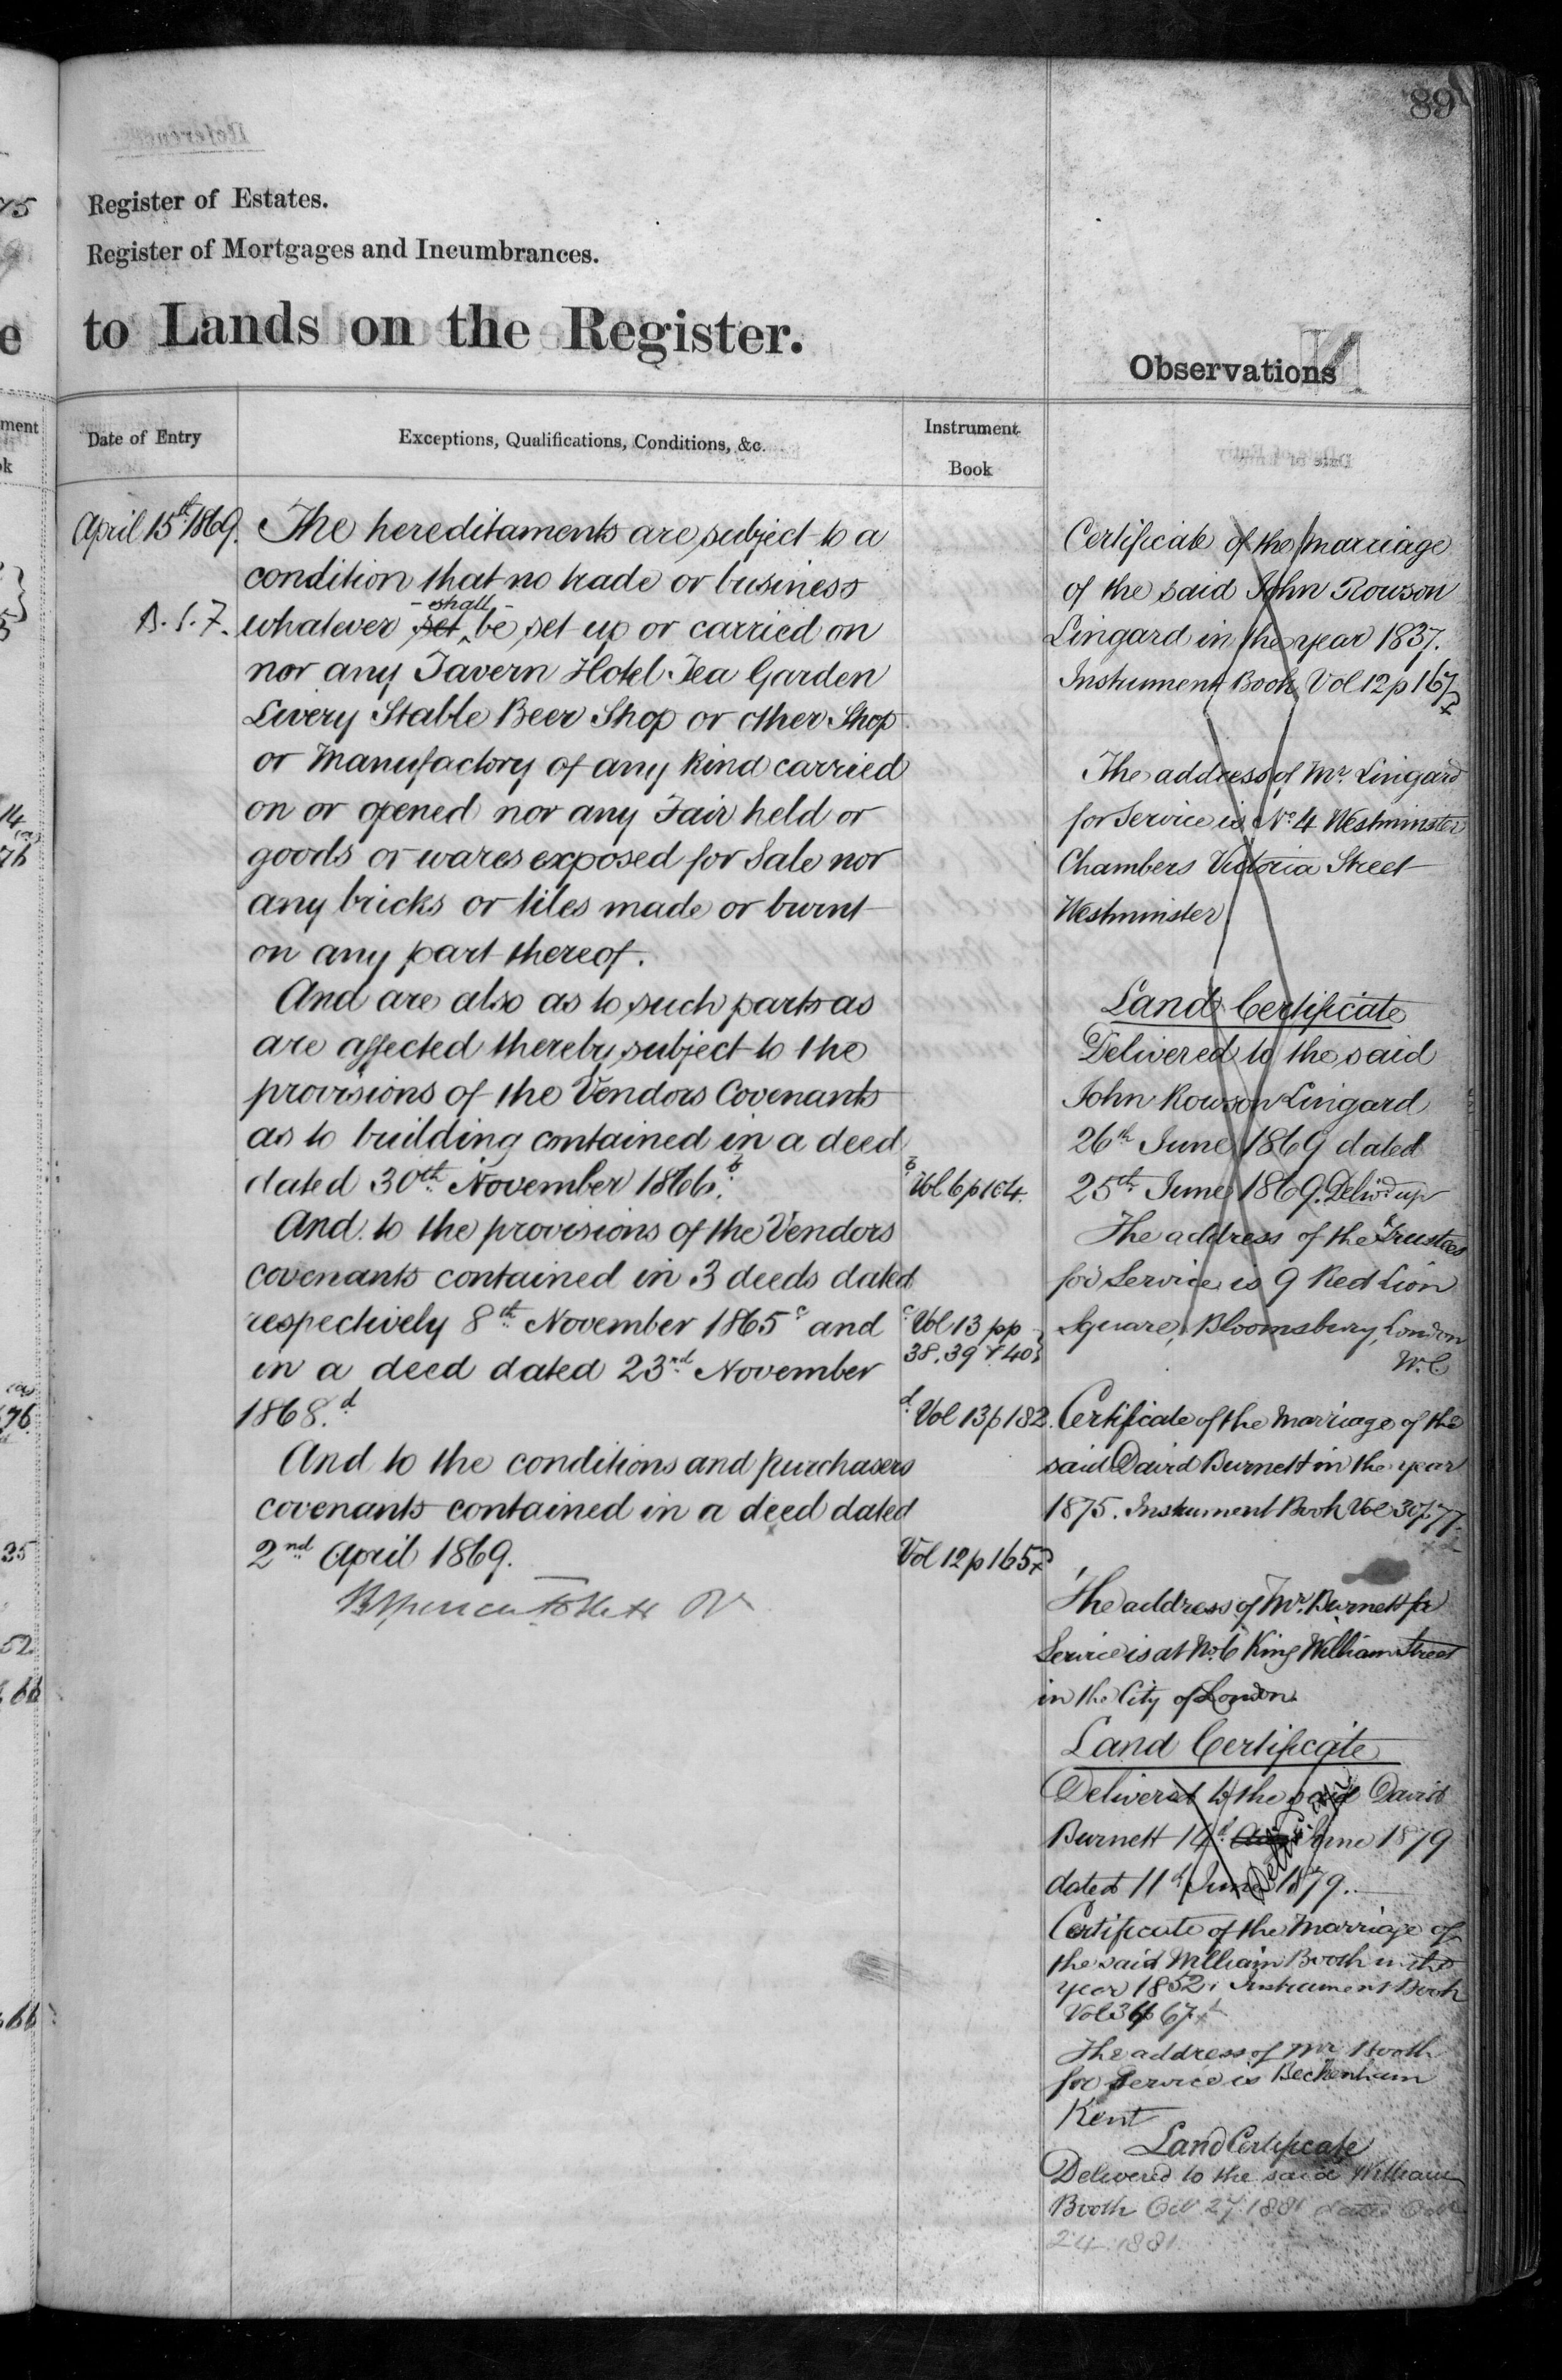 89
Register of Estates.
Register of Mortgages and Incumbrances.
to Lands on the Register.
Observations
Date of Entry
Exceptions, Qualifications, Conditions, &c.
Instrument
Book
April 15th 1869.
B.S.7.
The hereditaments are subject to a
condition that no trade or business
- shall -
whatever set ^ be set up or carried on
nor any Tavern Hotel Tea Garden
Livery Stable Beer Shop or other Shop
or Manufactory of any kind carried
on or opened nor any Fair held or
goods or wares exposed for Sale nor
any bricks or tiles made or burnt
on any part thereof.
And are also as to such parts as
are affected thereby subject to the
provisions of the Vendors Covenants
as to building contained in a deed
dated 30th November 1866.b
And to the provisions of the Vendors
covenants contained in 3 deeds dated
respectively 8th November 1865c and
in a deed dated 23rd November
1868.d
And to the conditions and purchasers
covenants contained in a deed dated
2nd April 1869.
b Vol 6 p 104.
c Vol 13 pp
38.39 & 40
d Vol 13 p 182.
Vol 12 p 165
Certificate of the marriage
of the said John Rowson
Lingard in the year 1837.
Instrument Book Vol 12 p 167
The address of Mr. Lingard
for Service is No. 4 Westminster
Chambers Victoria Street
Westminster
Land Certificate
Delivered to the said
John Rowson Lingard
26th June 1869 dated
25th June 1869. Deliv'd up
The address of the Trustees
for Service is 9 Red Lion
Square, Bloomsbury, London
W.C
Certificate of the Marriage of the
said David Burnett in the year
1875. Instrument Book Vol 30 p. 77.
The address of Mr. Burnett for
Service is at No. 6 King William Street
in the City of London.
Land Certificate
Delivered to the said David
Burnett 14th June 1879
dated 11th June 1879.
Certificate of the Marriage of
the said William Booth in the
year 1852. Instrument Book
Vol 34 p 67
The address of Mr Booth
for Service is Beckenham
Kent
Land Certificate
Delivered to the said William
Booth Oct 27 1881 dated Oct
24. 1881.